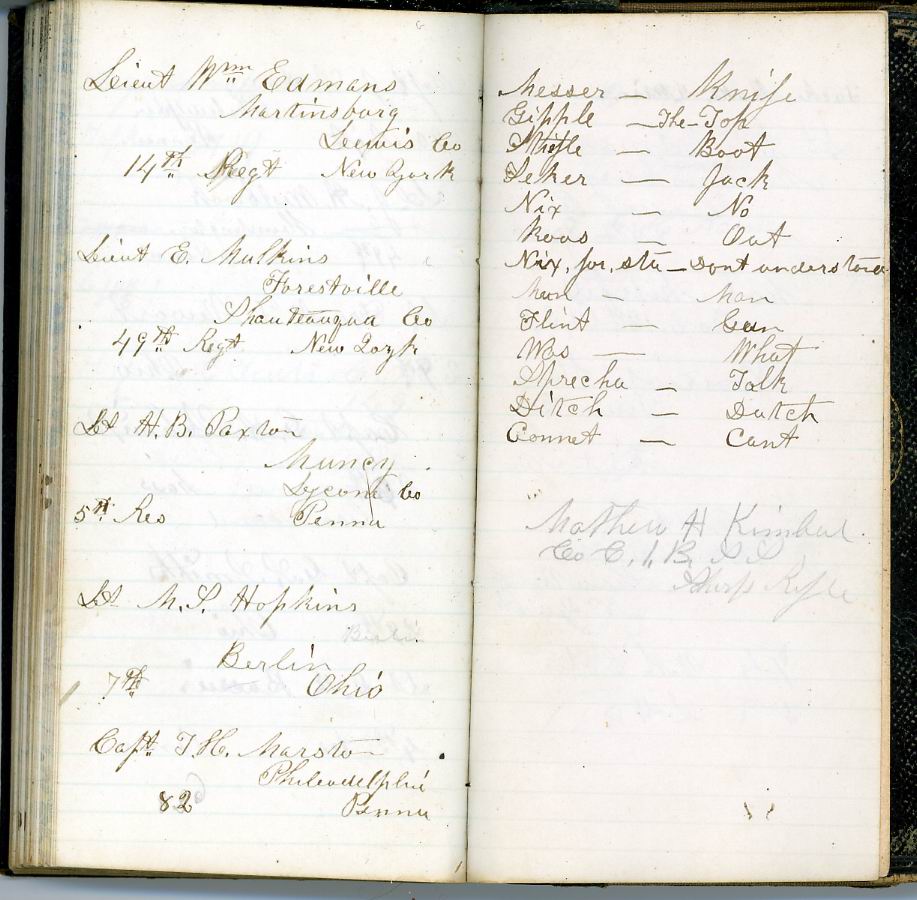 Lieut Wm Edmans
Martinsburg
Lewis Co
14th Regt New York
Lieut E. Mulkins
Forestville
Shauteauqua Co
49th Regt New York
Lt H. B. Paxton
Muncy
Lycom Co
5th Res Penna
Lt M. S. Hopkins
Berlin
Berlin
7th Ohio
Capt T. H. Marston
Phileadelphia
82 Penna
Messer — Knife
Gipple — The Top
Stiffle — Boot
Seker — Jack
Nix — No
Roos — Out
Nix, for, sta — Dont understand
Mun — Man
Flint — Gun
Was — What
Sprecha — Talk
Ditch — Dutch
Connet — Cant
Mathew H Kimbal
Co C, 1, B, S S,
Sharp Rifle